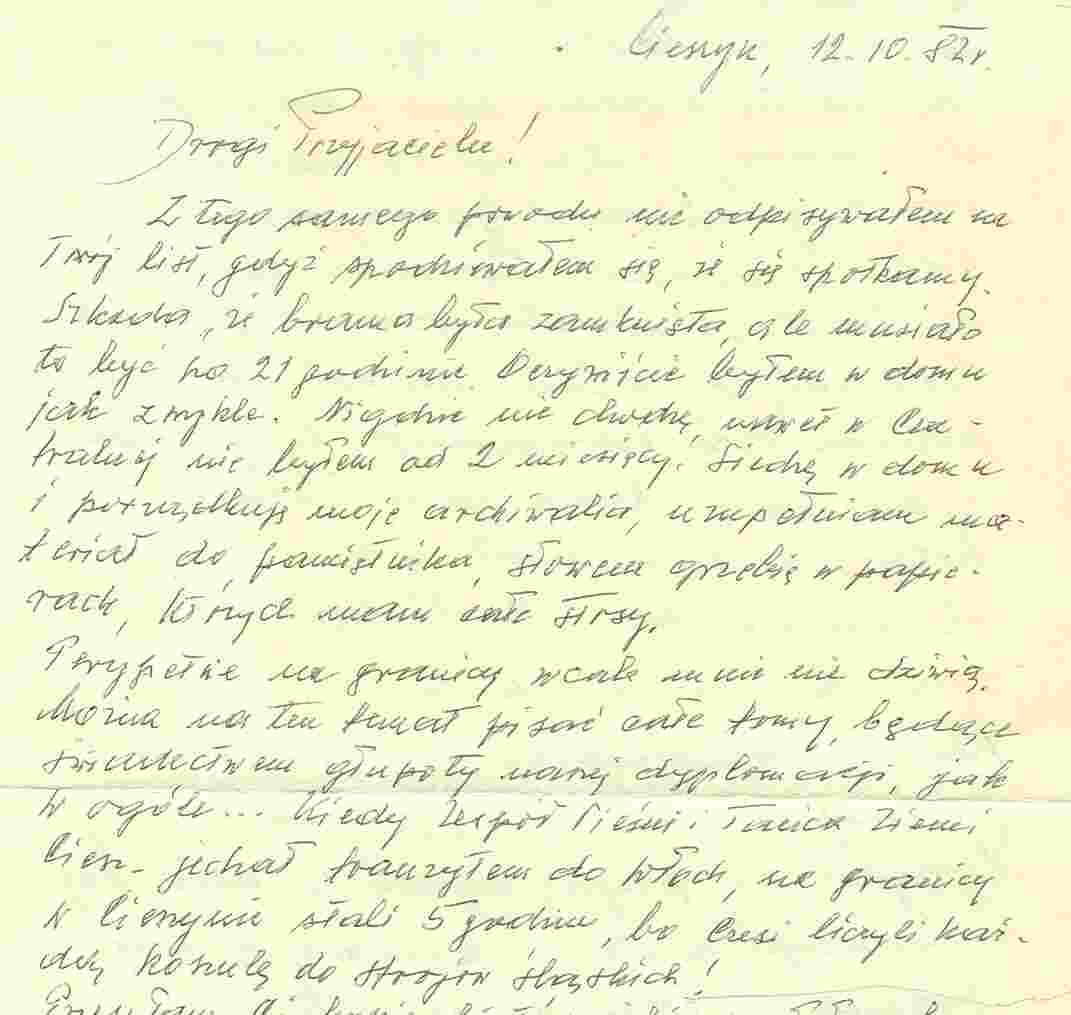 Cieszyn, 12.10.82r.
Drogi Przyjacielu!
Z tego samego powodu nie odpisywałem na
Twój list, gdyż spodziewałem się, że się spotkamy.
Szkoda, że brama była zamknięta, ale musiało
to być po 21 godzinie. Oczywiście byłem w domu
jak zwykle. Nigdzie nie chodzę, nawet w Cen-
tralnej nie byłem od 2 miesięcy. Siedzę w domu
i porządkuję moje archiwalia, uzupełniam ma-
teriał do pamiętnika, słowem grzebię w papie-
rach, których mam całe stosy.
Perypetie na granicy wcale mnie nie dziwią.
Można na ten temat pisać całe tomy, będące
świadectwem głupoty naszej dyplomacji, jak
w ogóle... Kiedy Zespół Pieśni i Tańca Ziemi
Ciesz. jechał tranzytem do Włoch, na granicy
w Cieszynie stali 5 godzin, bo Czesi liczyli każ-
dą koszulę do strojów śląskich!